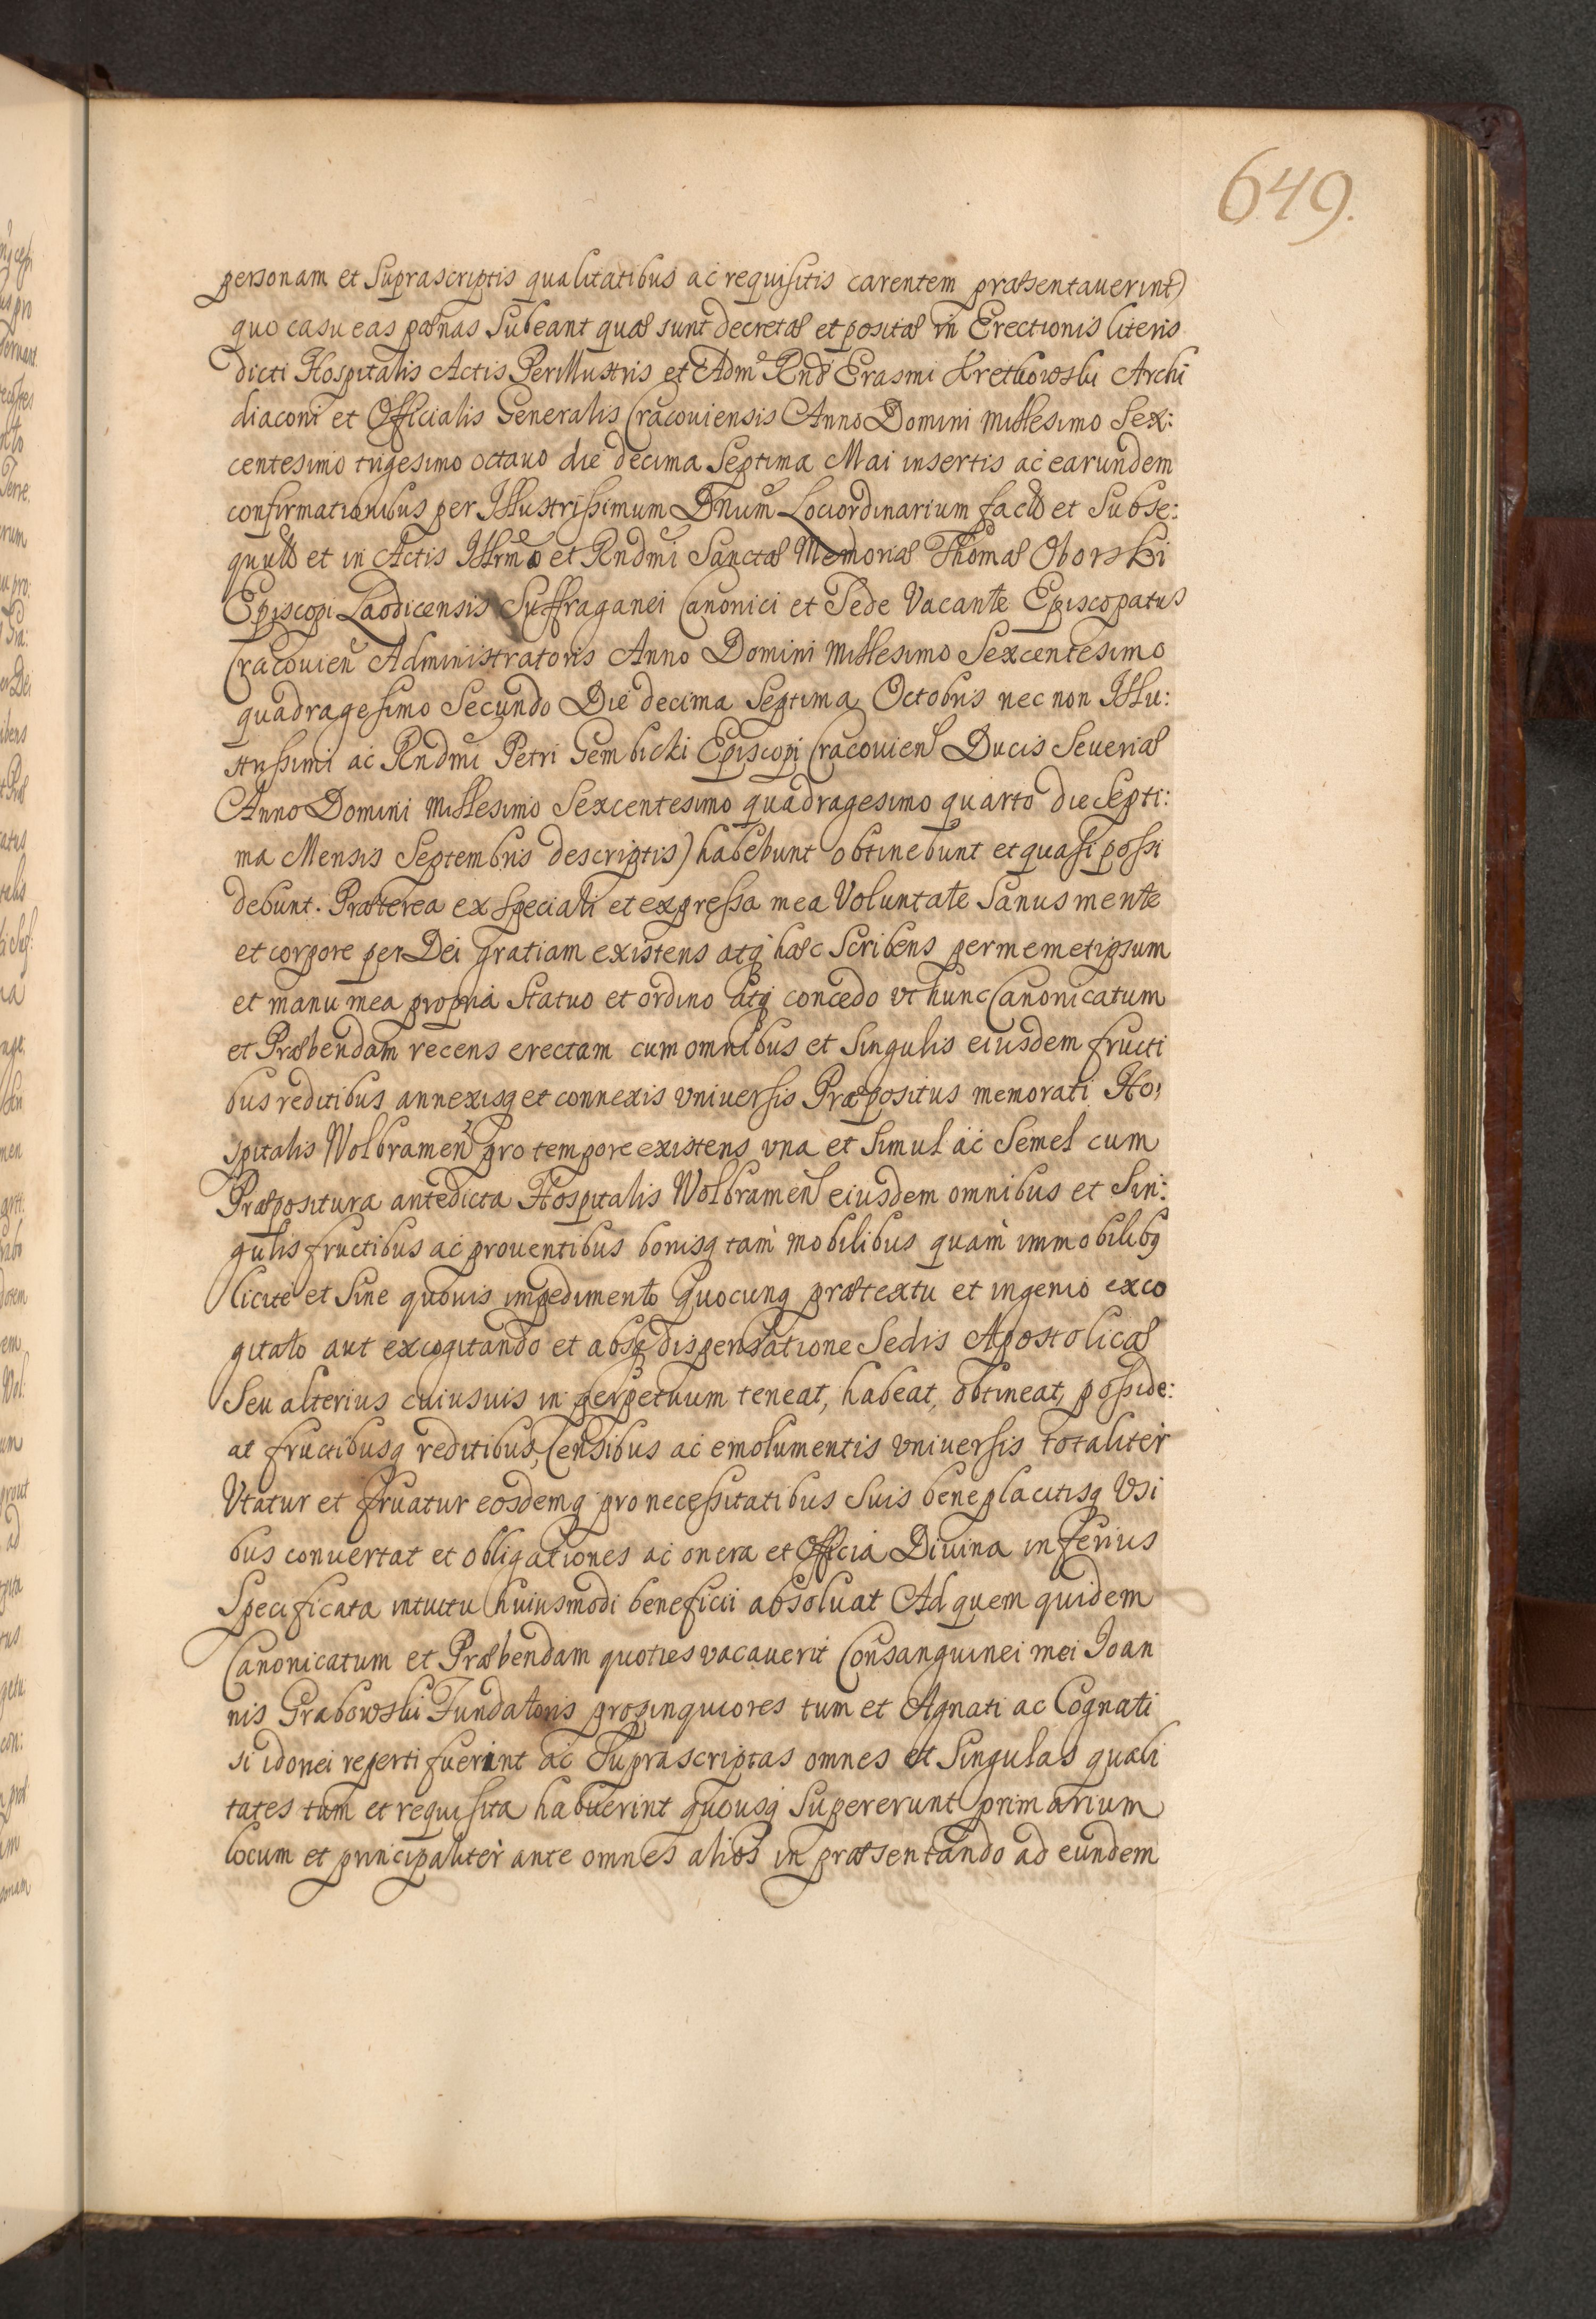 649.
personam et Suprascriptis qualitatibus ac requisitis carentem præsentauerint)
quo casu eas pœnas Subeant quæ sunt decretæ et positæ in Erectionis literis
dicti Hospitalis Actis Perillustris et Adm Rndi Erasmi Kretkowski Archi
diaconi et Officialis Generalis Cracouiensis Anno Domini Millesimo Sex:
centesimo trigesimo octauo die decima Septima Mai insertis ac earundem
confirmationibus per Illustrissimum Dnum Lociordinarium facto et Subse:
quuto et in Actis Illrmi et Rndmi Sanctæ Memoriæ Thomæ Oborski
Episcopi Laodicensis Suffraganei Canonici et Sede Vacante Episcopatus
Cracouien Administratoris Anno Domini Millesimo Sexcentesimo
quadragesimo Secundo Die decima Septima Octobris nec non Illu:
strissimi ac Rndmi Petri Gembicki Episcopi Cracouien Ducis Seueriæ
Anno Domini Millesimo Sexcentesimo quadragesimo quarto die Septi:
ma Mensis Septembris descriptis) habebunt obtinebunt et quasi possi
debunt. Præterea ex Speciali et expressa mea Voluntate Sanus mente
et corpore per Dei gratiam existens atq hæc Scribens per memetipsum
et manu mea propria Statuo et ordino atq concedo vt hunc Canonicatum
et Præbendam recens erectam cum omnibus et Singulis eiusdem fructi
bus reditibus annexisq et connexis vniuersis Præpositus memorati Ho,
spitalis Wolbramen pro tempore existens vna et Simul ac Semel cum
Præpositura antedicta Hospitalis Wolbramen eiusdem omnibus et Sin:
gulis fructibus ac prouentibus bonisq tam mobilibus quam immobilibq
licite et Sine quouis impedimento quocunq prætextu et ingenio exco
gitato aut excogitando et absq dispensatione Sedis Apostolicæ
Seu alterius cuiusuis in perpetuum teneat, habeat, obtineat, posside:
at fructibusq reditibus, Censibus ac emolumentis vniuersis totaliter
Vtatur et fruatur eosdemq pro necessitatibus Suis beneplacitisq Vsi
bus conuertat et obligationes ac onera et Officia Diuina inferius
Specificata intuitu huiusmodi beneficii absoluat Ad quem quidem
Canonicatum et Præbendam quoties vacauerit Consanguinei mei Ioan
nis Grabowski Fundatoris propinquiores tum et Agnati ac Cognati
si idonei reperti fuerint ac Suprascriptas omnes et Singulas quali
tates tum et requisita habuerint quousq Supererunt primarium
locum et principaliter ante omnes alios in præsentando ad eundem